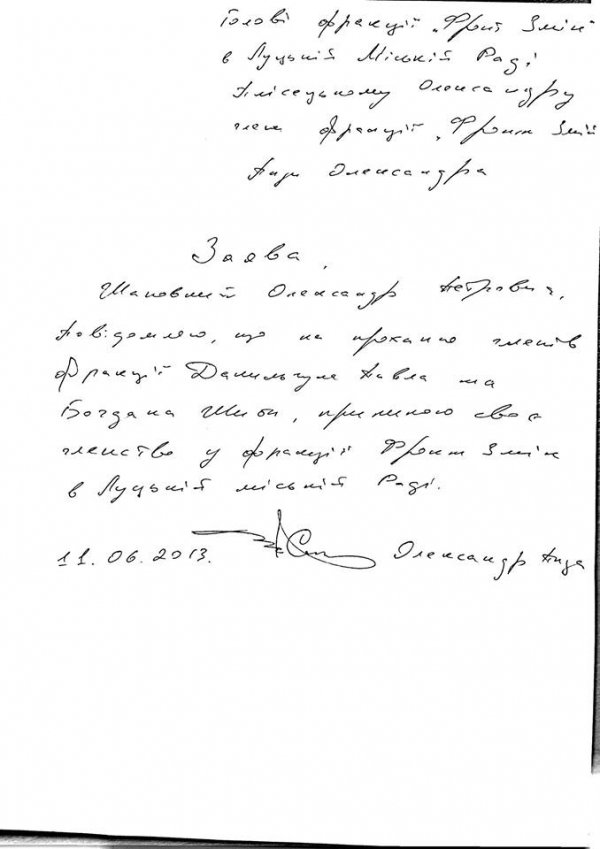 Голові фракції „Фронт Змін"
в Луцькій Міській Раді
Олександру
член фракції „Фронт Змін
Олександра
Заява.
Шановний Олександр Петрович,
повідомляю, що на прохання членів
фракції Данильчука Павла та
Богдана Шиби, припиняю своє
членство у фракції Фронт Змін
в Луцькій міській Раді.
11.06.2013. Олександр